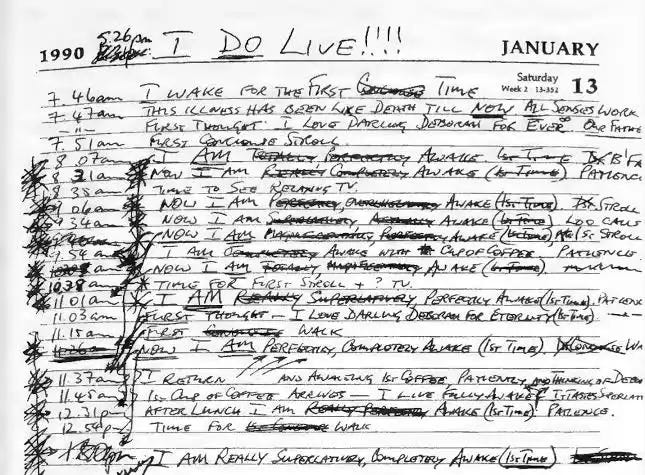 1990 5.26pm I DO LIVE!!!! JANUARY
Saturday
Week 2 13-352 13
7.46am I WAKE FOR THE FIRST Conscious TIME
7.47am THIS ILLNESS HAS BEEN LIKE DEATH TILL NOW ALL SENSES WORK
-"- FIRST THOUGHT: I LOVE DARLING DEBORAH FOR EVER OUR FATHE
7.51am FIRST CONSCIOUS STROLL
8.07am I AM TOTALLY PERFECTLY AWAKE 1ST TIME B'FA
8.31am NOW I AM REALLY COMPLETELY AWAKE (1ST TIME) PATIENC
8.35am TIME TO SEE RELAXING TV.
9.06am NOW I AM PERFECTLY OVERWHELMINGLY AWAKE (1ST TIME) STROLL
9.34am NOW I AM SUPERLATIVELY ACTUALLY AWAKE (1ST TIME) LOO CALLS
NOW I AM PERFECTLY AWAKE (1ST TIME) 1ST STROLL
9.54am I AM COMPLETELY AWAKE WITH CUP OF COFFEE PATIENCE.
NOW I AM TOTALLY, AWAKE (1ST TIME)
10.38am TIME FOR FIRST STROLL + ? TV.
11.01am I AM REALLY SUPERLATIVELY PERFECTLY AWAKE (1ST TIME) PATIENC
11.03am FIRST THOUGHT - I LOVE DARLING DEBORAH FOR ETERNITY (1ST TIME)
11.15am FIRST CONSCIOUS WALK
11.26am NOW I AM PERFECTLY, COMPLETELY AWAKE (1ST TIME) WA
11.37am I RETURN AND AWAITING 1ST COFFEE, PATIENTLY, AND THINKING OF DEBO
11.45am 1ST CUP OF COFFEE ARRIVES - I LIVE FULLY AWAKE
12.31pm AFTER LUNCH I AM REALLY PERFECTLY AWAKE (1ST TIME) PATIENCE.
12.54pm TIME FOR WALK
I AM REALLY SUPERLATIVELY, COMPLETELY AWAKE (1ST TIME)